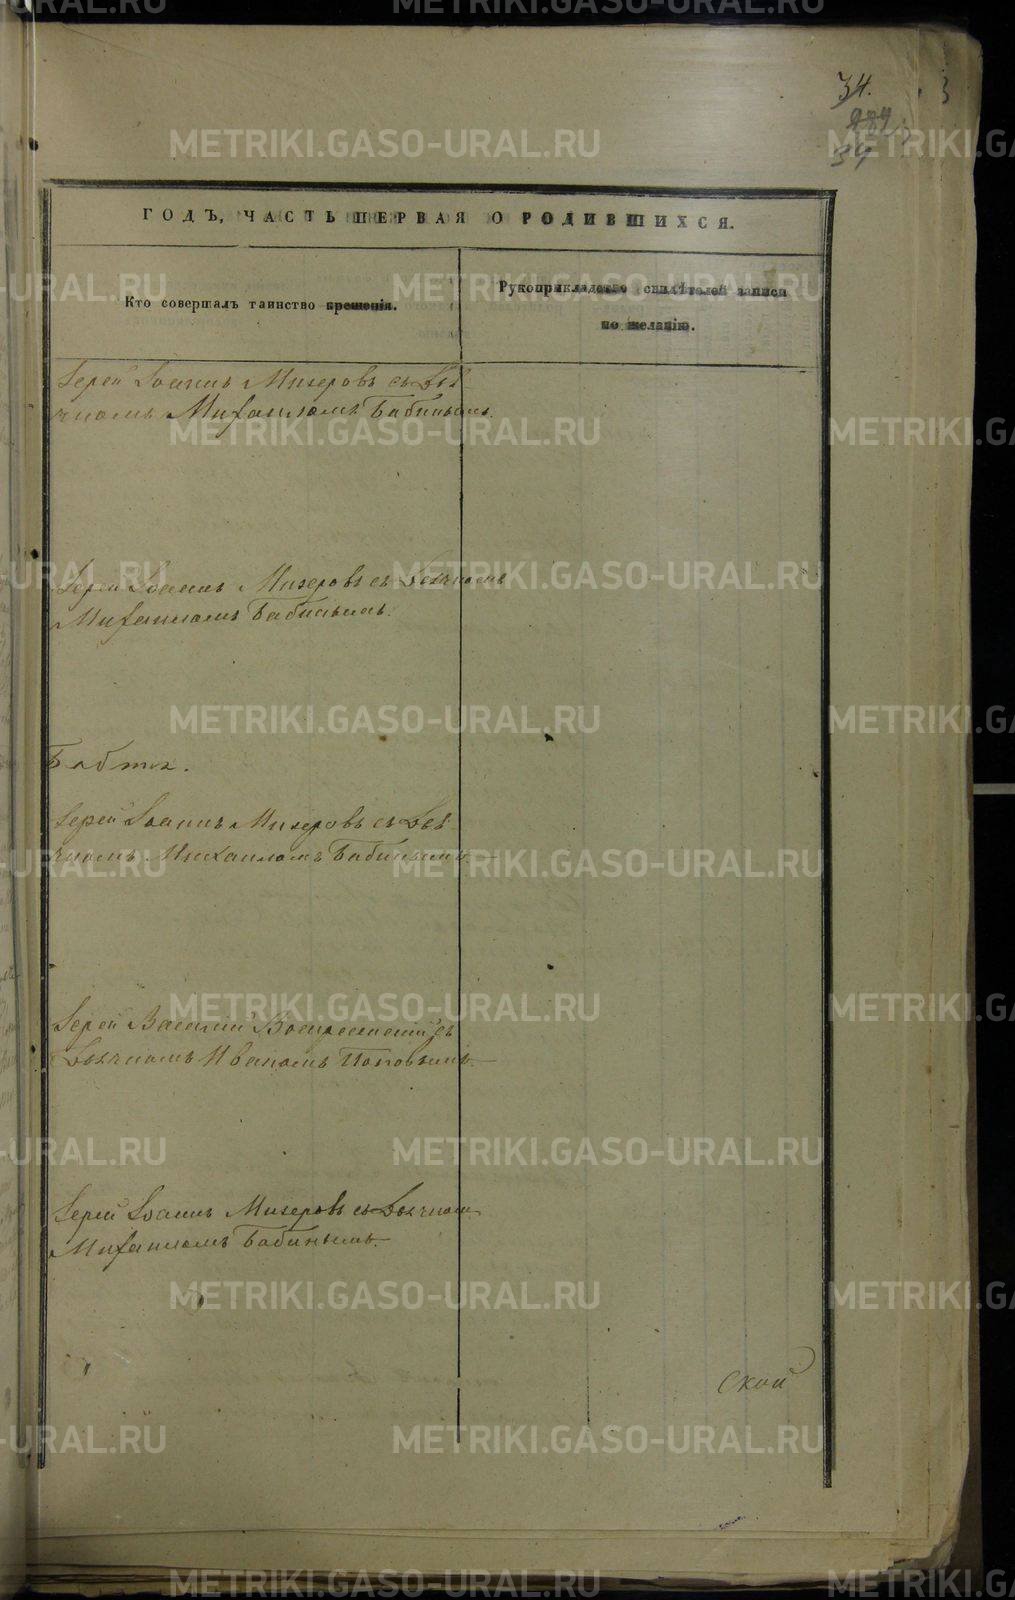 34.
39
ГОДЪ, ЧАСТЬ ПЕРВАЯ О РОДИВШИХСЯ.
Кто совершалъ таинство крещенія.
Рукоприкладство свидѣтелей записи
по желанію.
Іерей Іоаннъ Мизеровъ съ Дья
чкомъ Михаиломъ Бабинымъ.
Іерей Іоаннъ Мизеровъ съ Дьячкомъ
Михаиломъ Бабинымъ.
Іерей Іоаннъ Мизеровъ съ Дья
чкомъ Михаиломъ Бабинымъ
Іерей Василій Воскресенскій съ
Дьячкомъ Иваномъ Поповымъ.
Іерей Іоаннъ Мизеровъ съ Дьячком
Михаиломъ Бабинымъ.
ской
METRIKI.GASO-URAL.RU